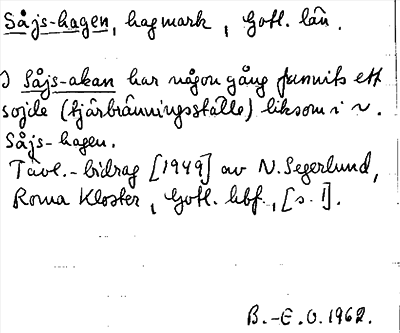 Såjs-hagen, hagmark, Gotl. län.
I Såjs-akan har någon gång funnits ett
sojde (tjärbränningsställe) liksom i ~.
Såjs-hagen.
Tävl.-bidrag [1949] av N. Segerlund,
Roma Kloster, Gotl. hbf., [s. 1].
B.-E. O. 1962.